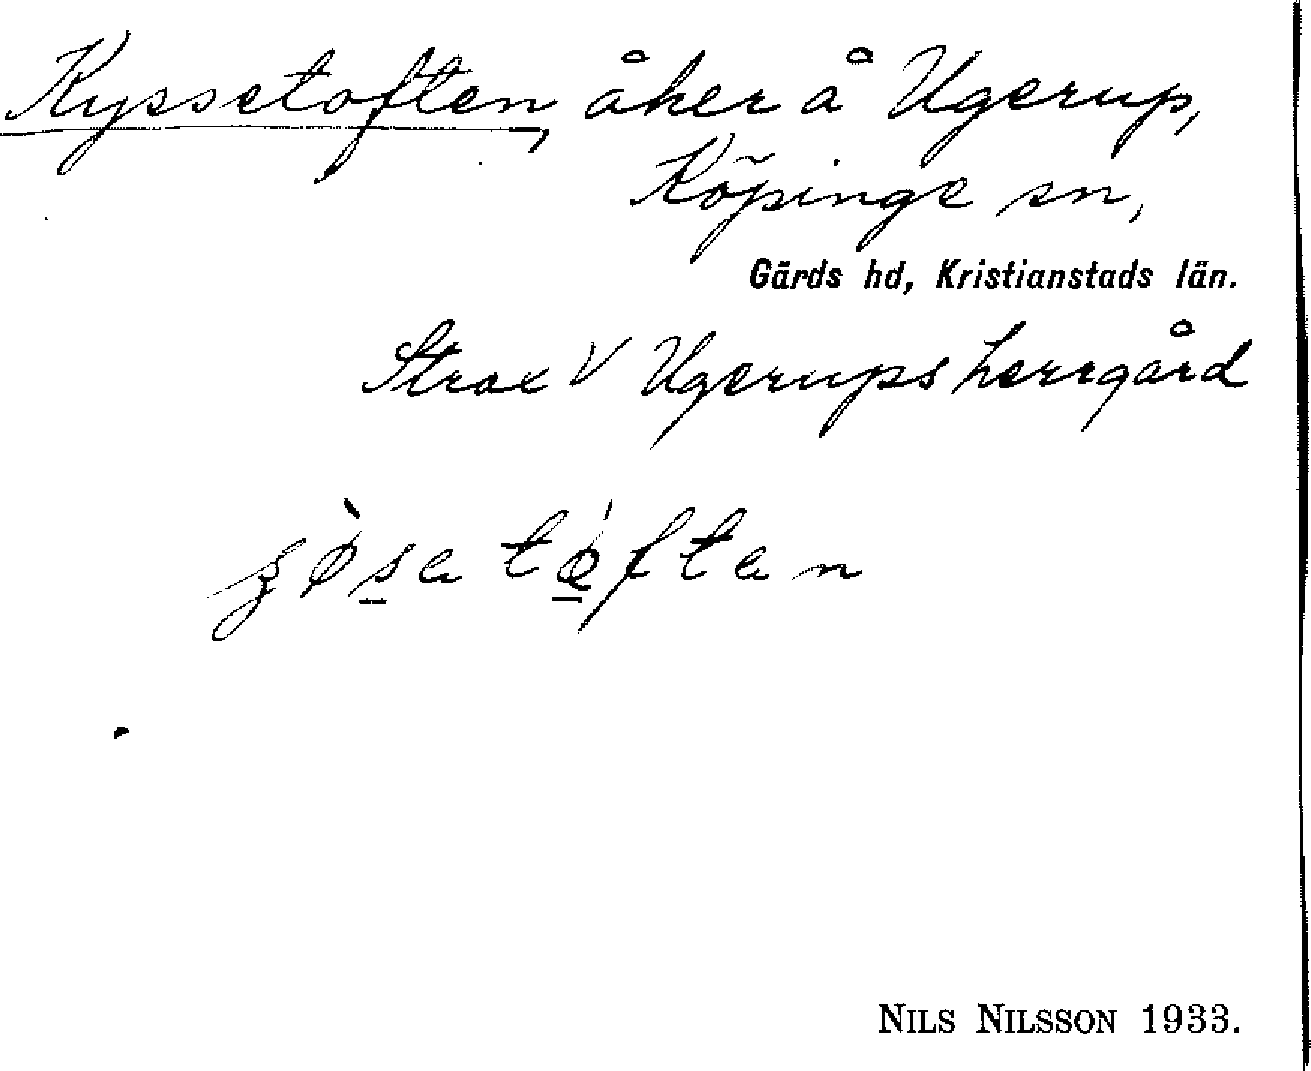 Kyssetoften, åker å Ugerup,
Köpinge sn,
Gärds hd, Kristianstads län.
Strax V Ugerups herrgård
NILS NILSSON 1933.